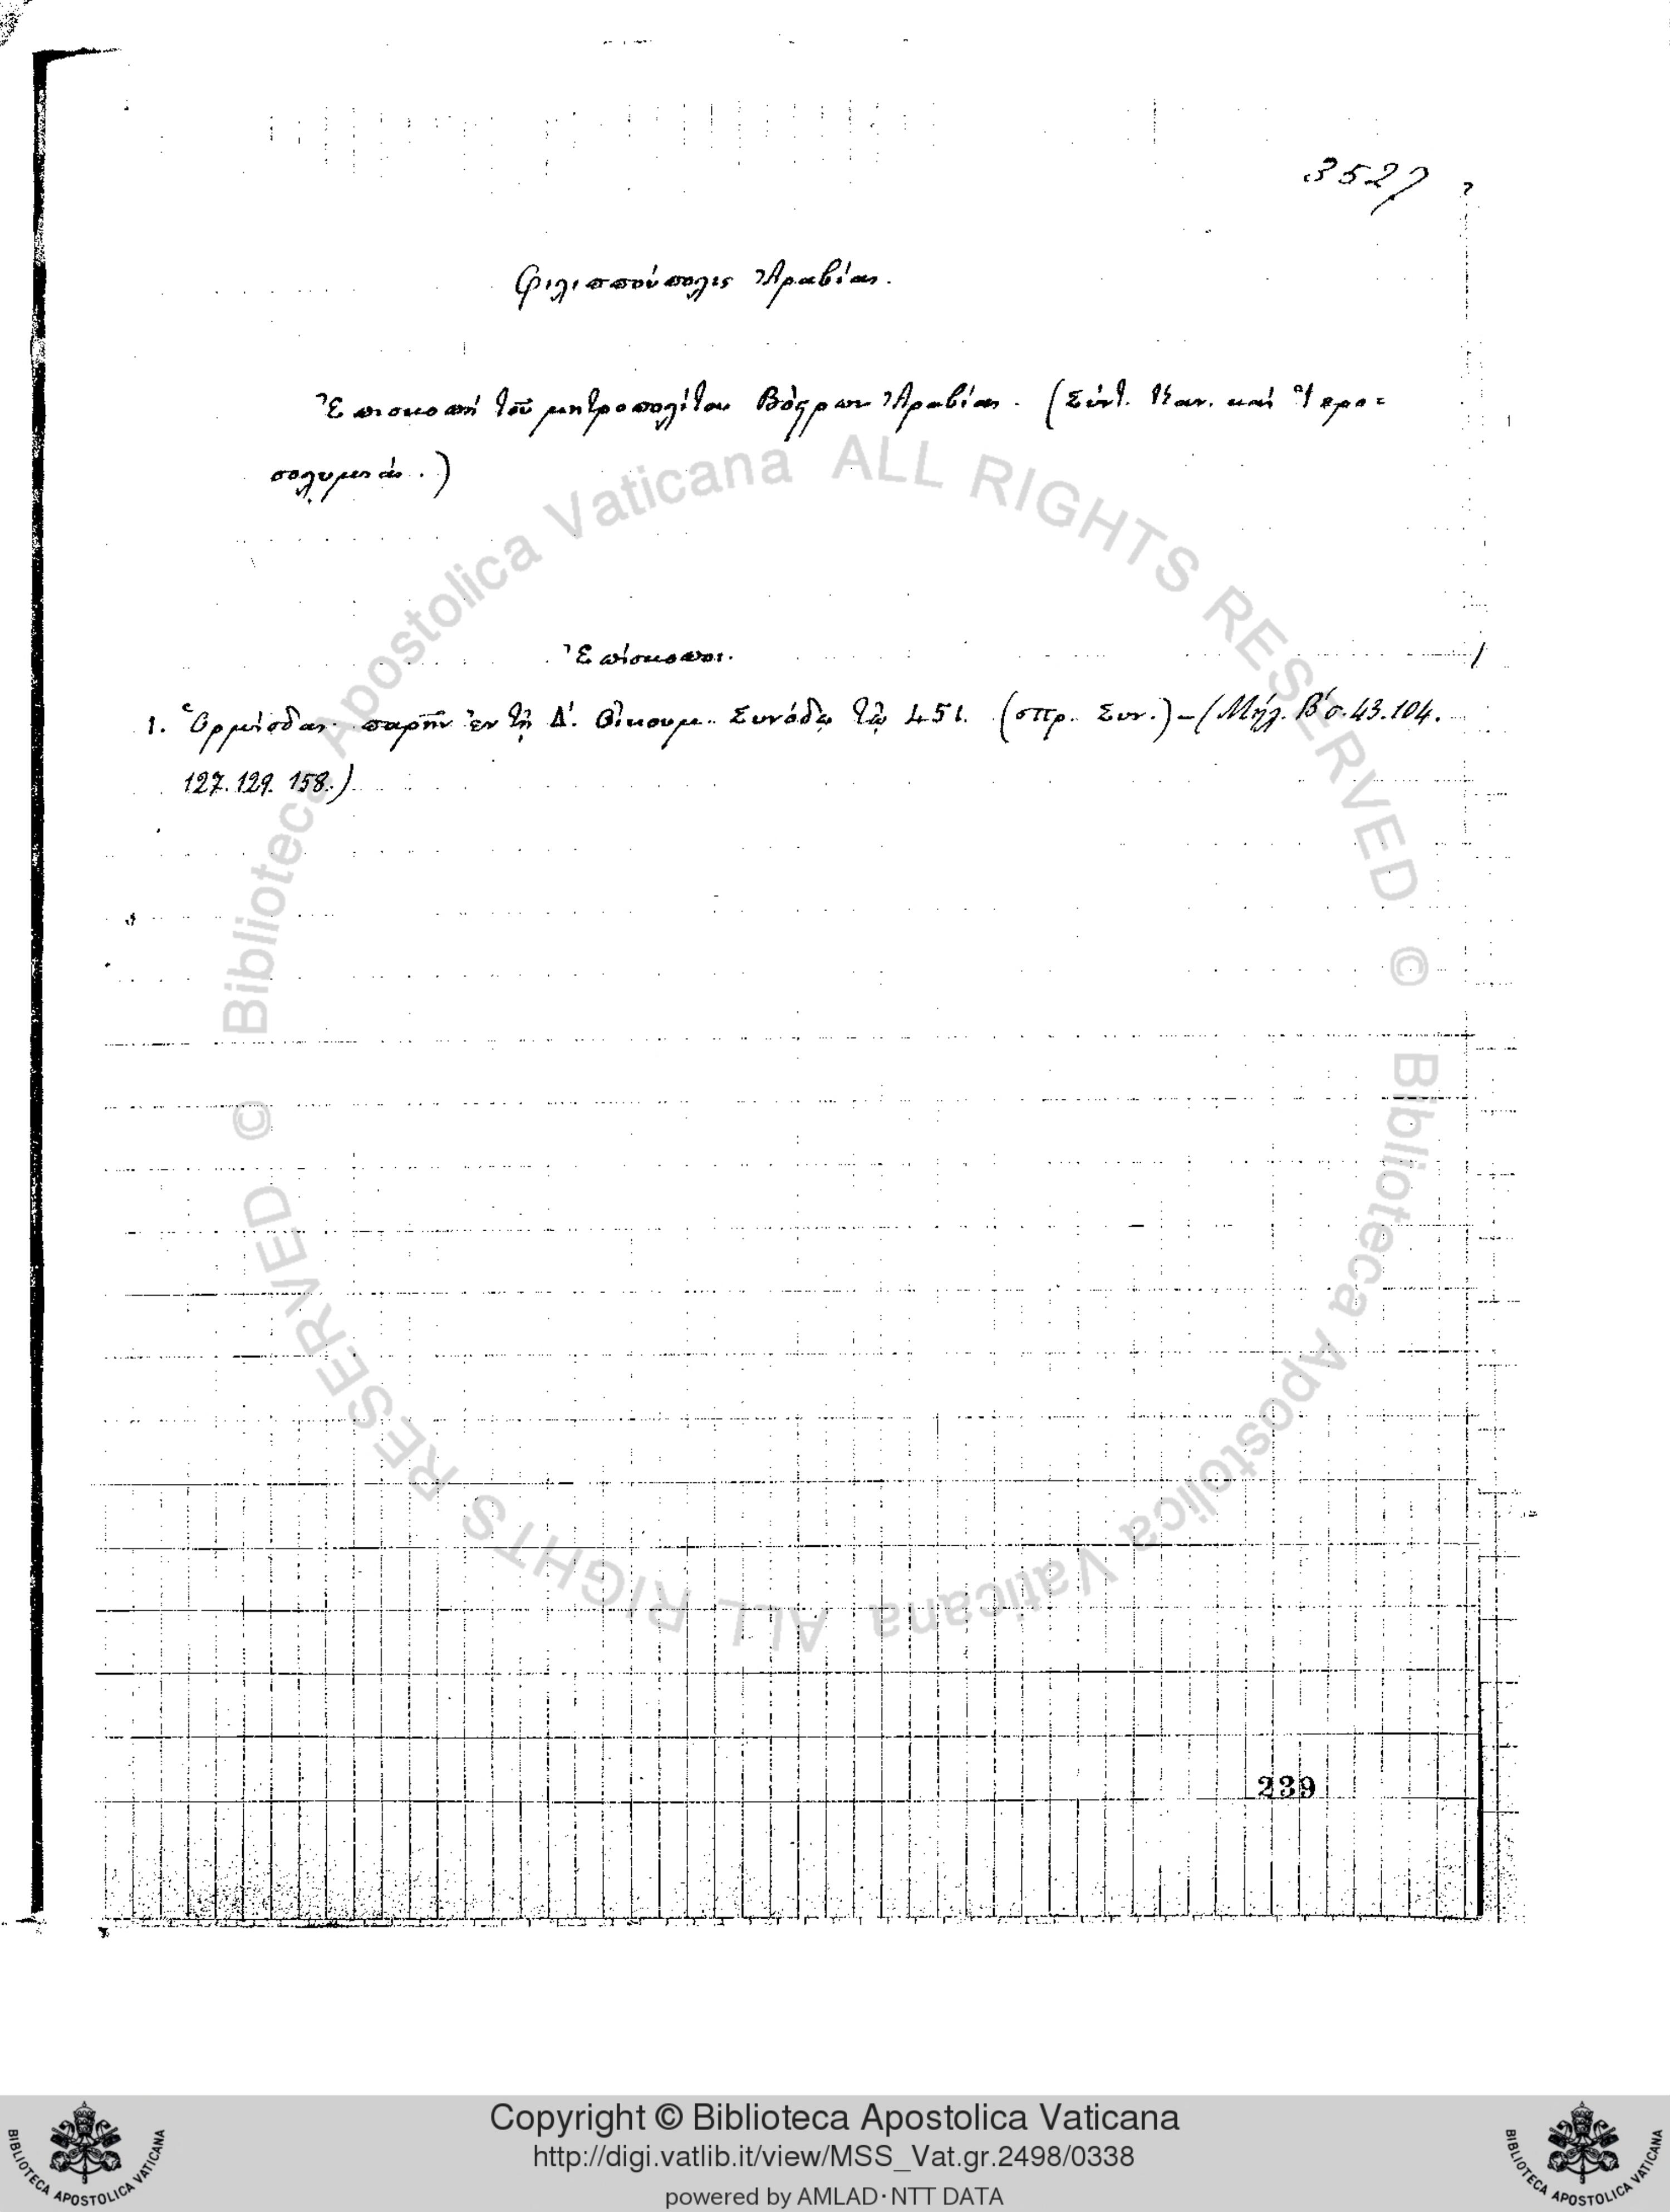 3527
Φιλιππούπολις Ἀραβίας.
Ἐπισκοπὴ τοῦ μητροπολίτου Βόστρων Ἀραβίας. (Σύντ. Καν. καὶ Ἱερο=
σολυμιάς.)
Ἐπίσκοποι.
1. Ὁρμίσδας· παρῆν ἐν τῇ Δ΄. Οἰκουμ. Συνόδῳ τῷ 451. (σπρ. Συν.) – (Μήλ. Β΄ σ. 43. 104.
127. 129. 158.)
239
© Biblioteca Apostolica Vaticana ALL RIGHTS RESERVED
© Biblioteca Apostolica Vaticana ALL RIGHTS RESERVED
Copyright © Biblioteca Apostolica Vaticana
http://digi.vatlib.it/view/MSS_Vat.gr.2498/0338
powered by AMLAD·NTT DATA
BIBLIOTECA APOSTOLICA VATICANA
BIBLIOTECA APOSTOLICA VATICANA